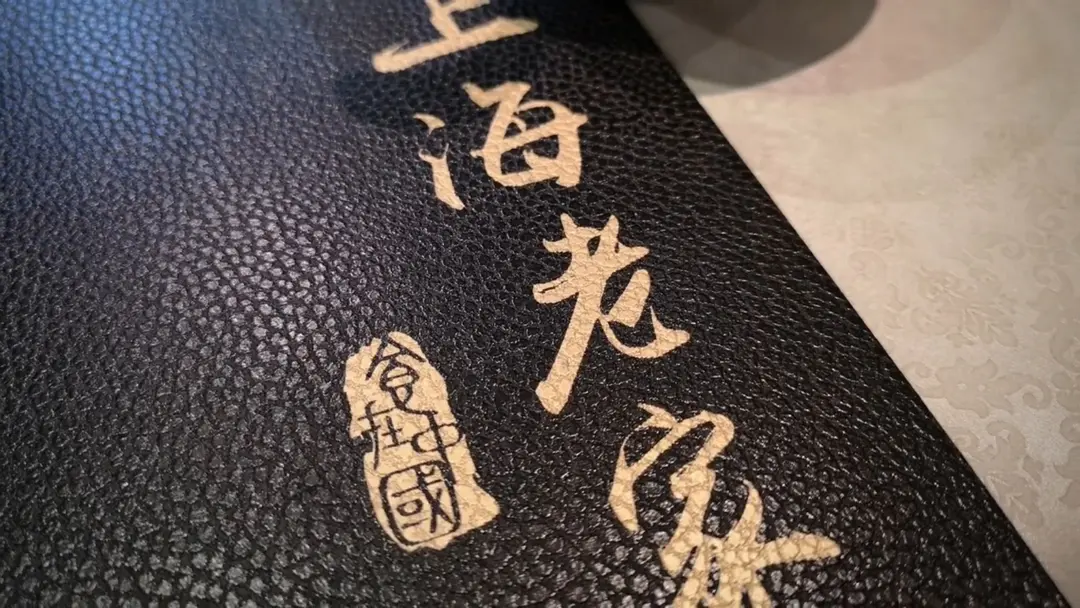 上海老家
食在中國